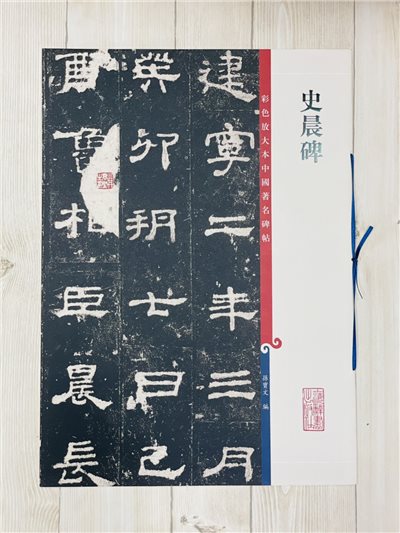 史晨碑
彩色放大本中國著名碑帖
孫寶文 編
建寧二年三月
癸卯朔七日己
酉魯相臣晨長